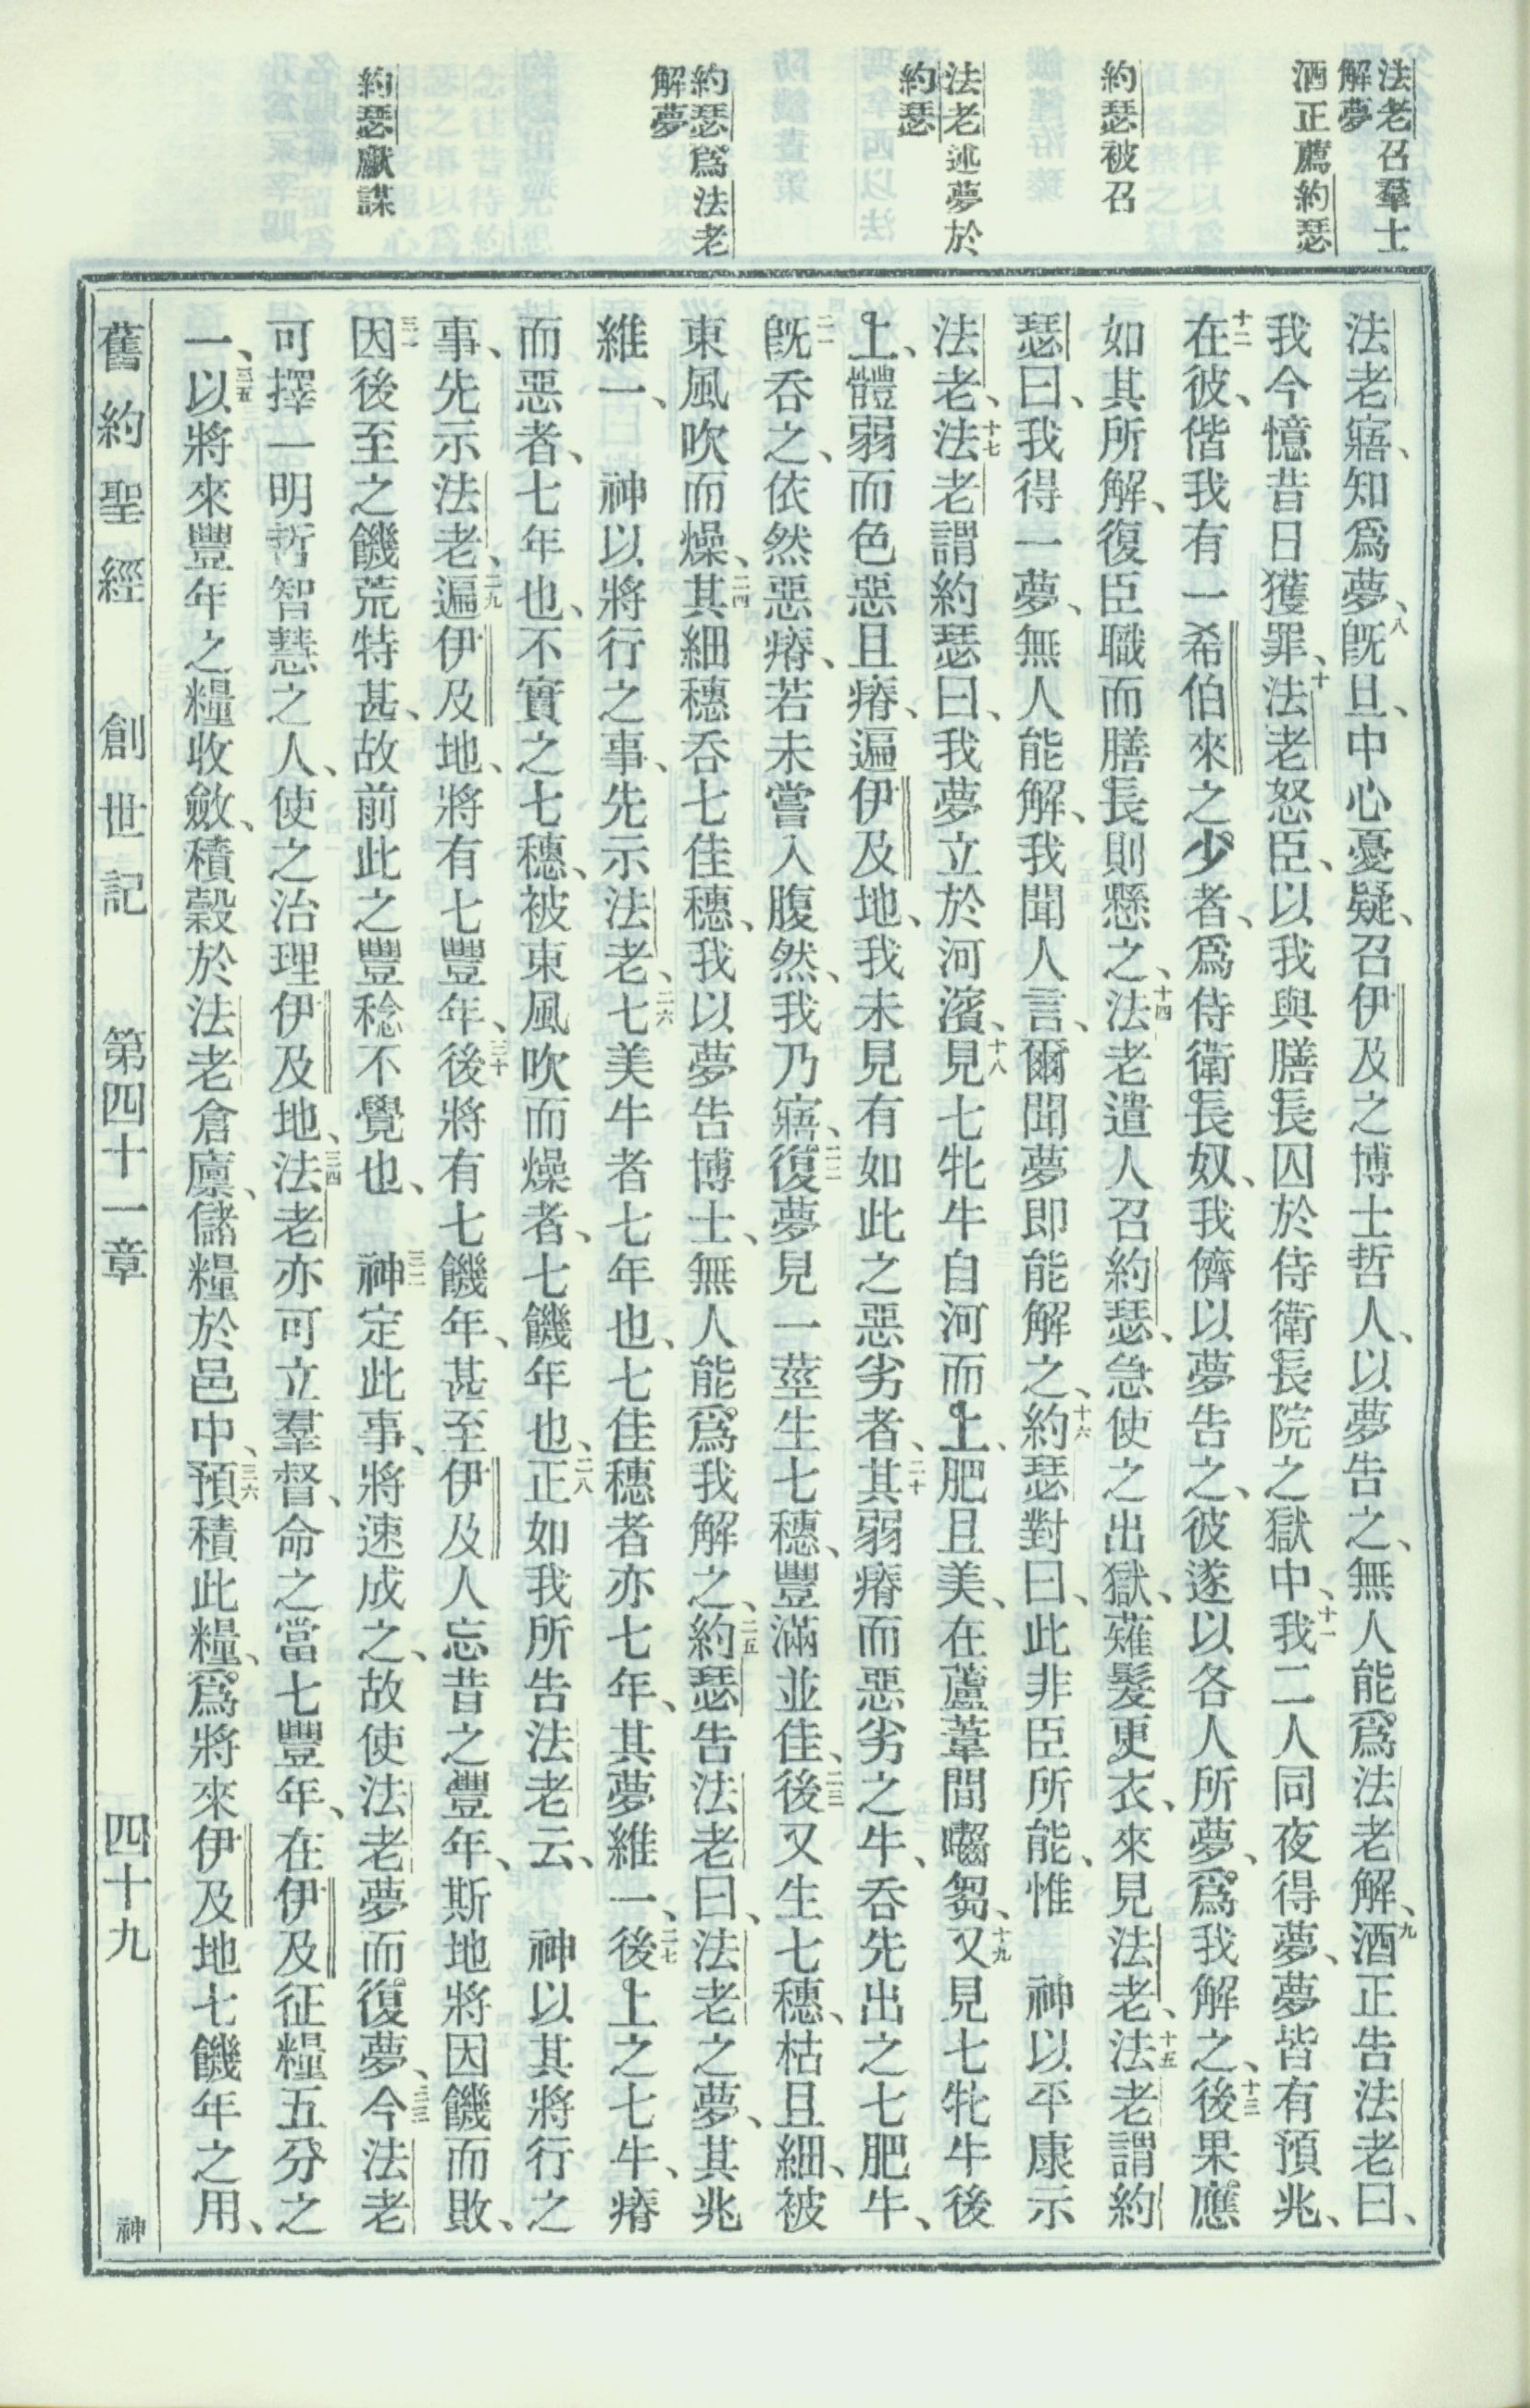 法老召羣士
解夢
酒正薦約瑟
約瑟被召
法老述夢於
約瑟
約瑟爲法老
解夢
約瑟獻謀
法老寤、知爲夢、八既旦、中心憂疑、召伊及之博士哲人、以夢告之、無人能爲法老解、九酒正告法老曰、
我今憶昔日獲罪、十法老怒臣、以我與膳長囚於侍衛長院之獄中、十一我二人同夜得夢、夢皆有預兆、
十二在彼、偕我有一希伯來之少者、爲侍衛長奴、我儕以夢告之、彼遂以各人所夢、爲我解之、十三後果應
如其所解、復臣職而膳長則懸之、十四法老遣人召約瑟、急使之出獄、薙髮更衣、來見法老、十五法老謂約
瑟曰、我得一夢、無人能解、我聞人言、爾聞夢即能解之、十六約瑟對曰、此非臣所能、惟 神以平康示
法老、十七法老謂約瑟曰、我夢立於河濱、十八見七牝牛自河而上、肥且美、在蘆葦間囓芻、十九又見七牝牛後
上、體弱而色惡且瘠、遍伊及地、我未見有如此之惡劣者、二十其弱瘠而惡劣之牛、吞先出之七肥牛、
二一既吞之、依然惡瘠、若未嘗入腹然、我乃寤、二二復夢見一莖生七穗、豐滿並佳、二三後又生七穗、枯且細、被
東風吹而燥、二四其細穗吞七佳穗、我以夢告博士、無人能爲我解之、二五約瑟告法老曰、法老之夢、其兆
維一、 神以將行之事、先示法老、二六七美牛者七年也、七佳穗者亦七年、其夢維一、二七後上之七牛、瘠
而惡者、七年也、不實之七穗、被東風吹而燥者、七饑年也、二八正如我所告法老云、 神以其將行之
事、先示法老、二九遍伊及地、將有七豐年、三十後將有七饑年、甚至伊及人忘昔之豐年、斯地將因饑而敗、
三一因後至之饑荒特甚、故前此之豐稔不覺也、 三二神定此事、將速成之、故使法老夢而復夢、三三今法老
可擇一明哲智慧之人、使之治理伊及地、三四法老亦可立羣督、命之當七豐年、在伊及征糧五分之
一、三五以將來豐年之糧收斂、積穀於法老倉廩、儲糧於邑中、三六預積此糧、爲將來伊及地七饑年之用、
舊約聖經 創世記 第四十一章 四十九 神